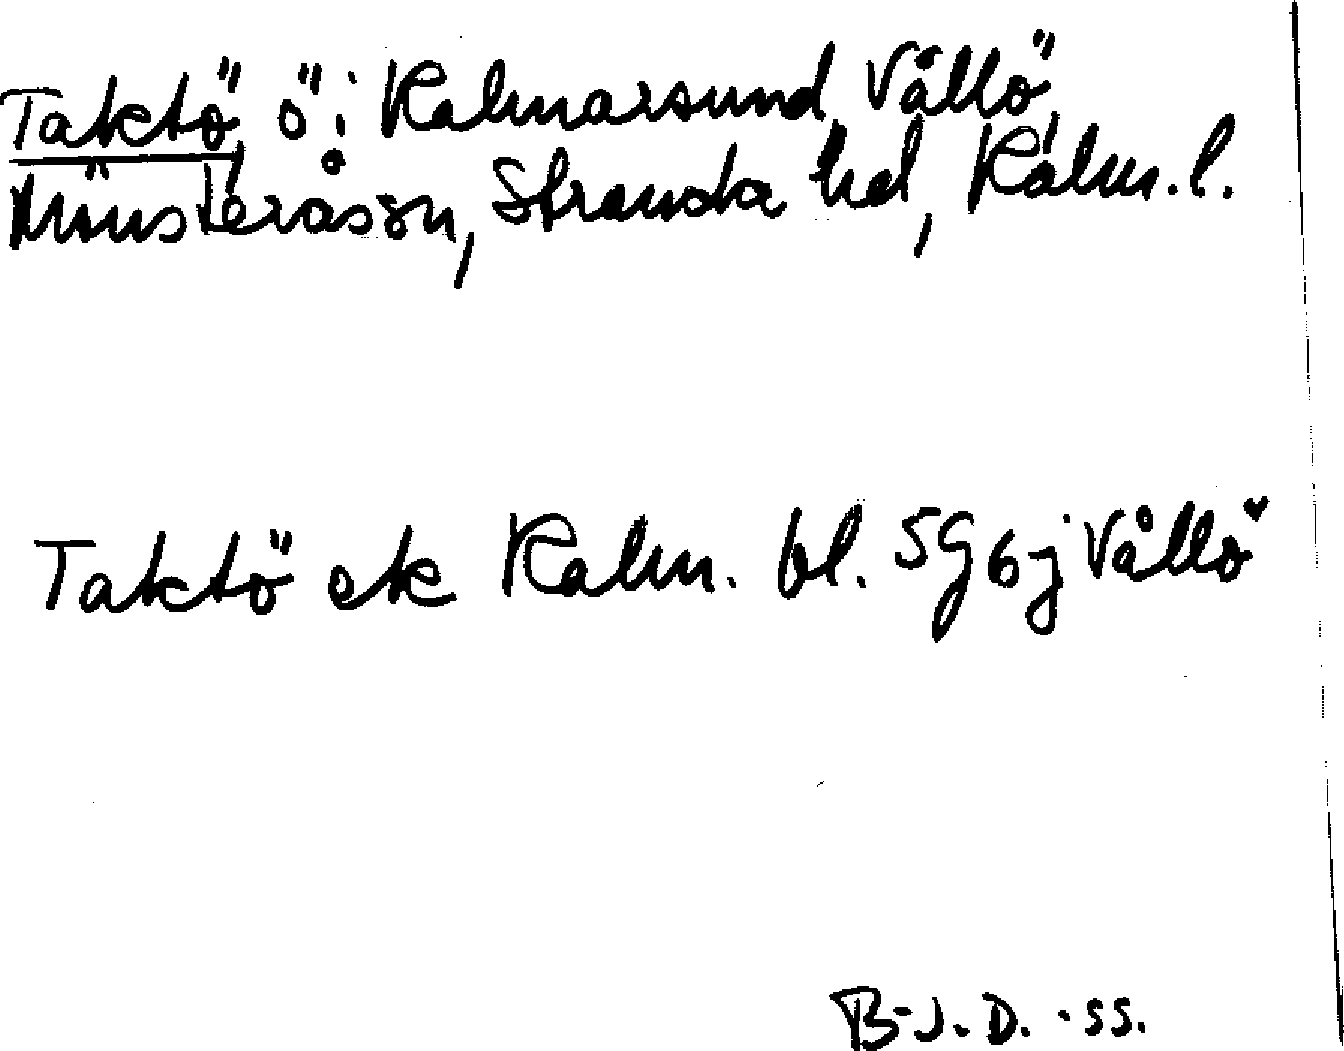 Taktö, ö i Kalmarsund, Vållö,
Mönsterås sn, Stranda hd, Kalm. l.
Taktö ek Kalm. bl. 5G6j Vållö
B-J.D. -55.